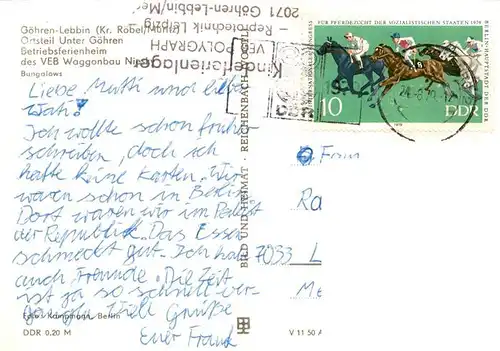 Göhren-Lebbin (Kr. Röbel/Müritz)
Ortsteil Unter Göhren
Betriebsferienheim
des VEB Waggonbau
Bungalows
Kinderferienlager
VEB POLYGRAPH
– Reprotechnik Leipzig –
2071 Göhren-Lebbin/Mer
Liebe Mutti und liebe
Ich wollte schon früher
schreiben, doch ich
hatte keine Karten. Wir
waren schon in Berlin.
Dort waren wir im Palast
der Republik. Das Essen
schmeckt gut. Ich hab
auch Freunde. Die Zeit
ist ja so schnell ver-
gangen. Viele Grüße
Euer Frank
Foto: Kampmann, Berlin
DDR 0,20 M
BILD UND HEIMAT · REICHENBACH (VOGTL)
V 11 50 A
FÜR PFERDEZUCHT DER SOZIALISTISCHEN STAATEN 1974
BERLIN-HAUPTSTADT DER DDR
10
DDR
Fram
Ra
7033 L
Me